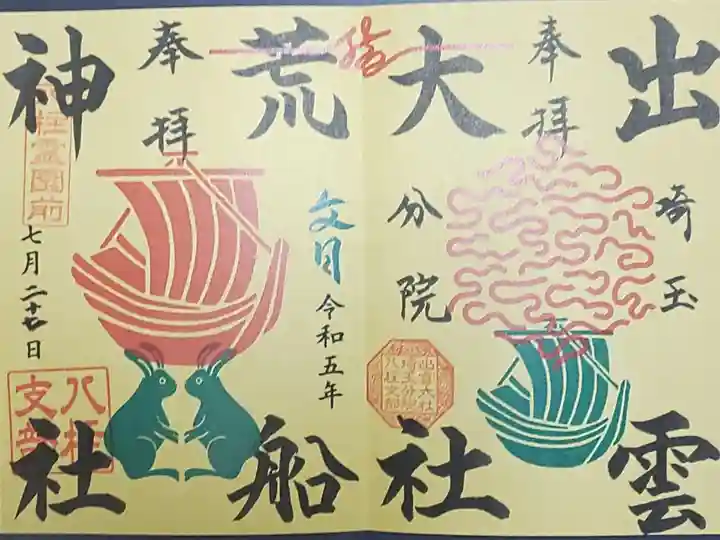 出雲
奉拝
埼玉
大社
分院
荒船
奉拝
文月
令和五年
神社
七月二十七日
柱霊園前
八柱
支部